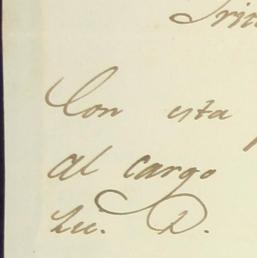 Con esta
al cargo
Lic. D.